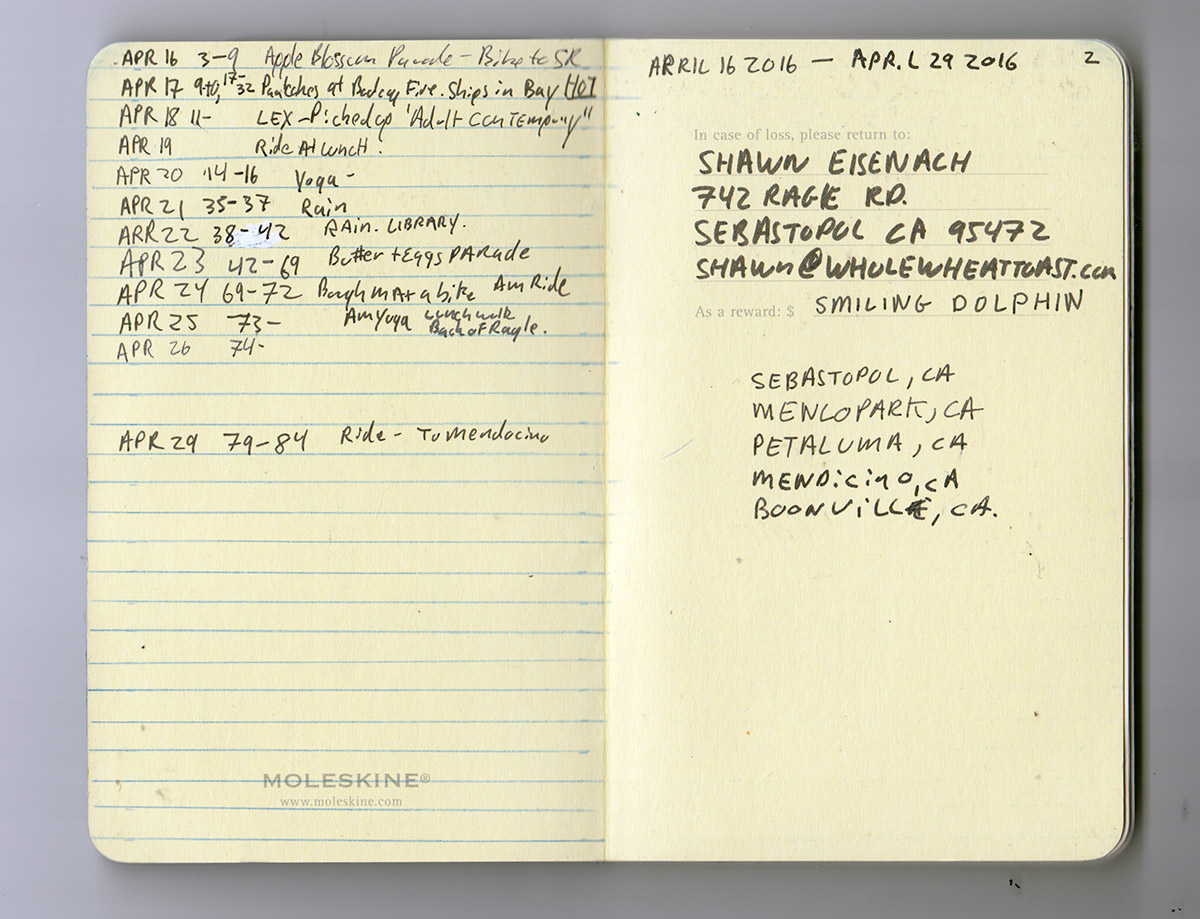 APR 16 3-9 Apple Blossom Parade - Bike to SR
APR 17 9-10, 17-32 at Bodega Fire. Ships in Bay HOT
APR 18 11- LEX - Picked up "Adult Contempory"
APR 19 Ride At Lunch.
APR 20 14-16 Yoga -
APR 21 35-37 Rain
APR 22 38-42 RAin. LIBRARY.
APR 23 42-69 Butter + Eggs PARADE
APR 24 69-72 Bough mAr a bike Am Ride
APR 25 73- Am Yoga Lunch walk
Back of Ragle.
APR 26 74-
APR 29 79-84 Ride - To Mendocino
MOLESKINE®
www.moleskine.com
APRIL 16 2016 — APRIL 29 2016 2
In case of loss, please return to:
SHAWN EISENACH
742 RAGLE RD.
SEBASTOPOL CA 95472
SHAWN@WHOLEWHEATTOAST.COM
As a reward: $ SMILING DOLPHIN
SEBASTOPOL, CA
MENLOPARK, CA
PETALUMA, CA
MENDiCiNO, CA
BOONViLLE, CA.